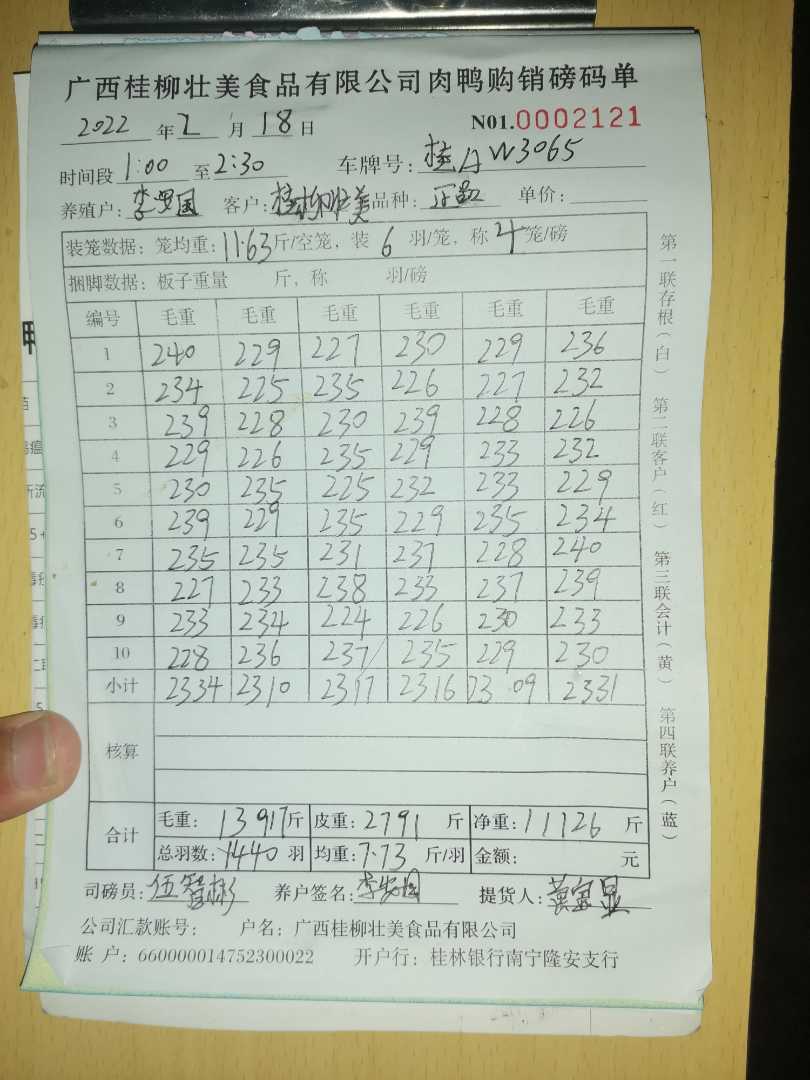 广西桂柳壮美食品有限公司肉鸭购销磅码单
2022 年 2 月 18 日 N01.0002121
时间段 1:00 至 2:30 车牌号: 桂A W3065
养殖户: 客户: 桂柳壮美 品种: 单价:
装笼数据: 笼均重: 11.63 斤/空笼, 装 6 羽/笼, 称 4 笼/磅
捆脚数据: 板子重量 斤, 称 羽/磅
编号 毛重 毛重 毛重 毛重 毛重 毛重
1 240 229 227 230 229 236
2 234 225 235 226 227 232
3 239 228 230 239 228 226
4 229 226 235 229 233 232
5 230 235 225 232 233 229
6 239 229 235 229 235 234
7 235 235 231 237 228 240
8 227 233 238 233 237 239
9 233 234 224 226 230 233
10 228 236 237 235 229 230
小计 2334 2310 2317 2316 23.09 2331
核算
合计 毛重: 13917 斤 皮重: 2791 斤 净重: 11126 斤
总羽数: 1440 羽 均重: 7.73 斤/羽 金额: 元
司磅员: 伍智彬 养户签名: 提货人:
公司汇款账号: 户名: 广西桂柳壮美食品有限公司
账 户: 660000014752300022 开户行: 桂林银行南宁隆安支行
第一联存根(白)
第二联客户(红)
第三联会计(黄)
第四联养户(蓝)